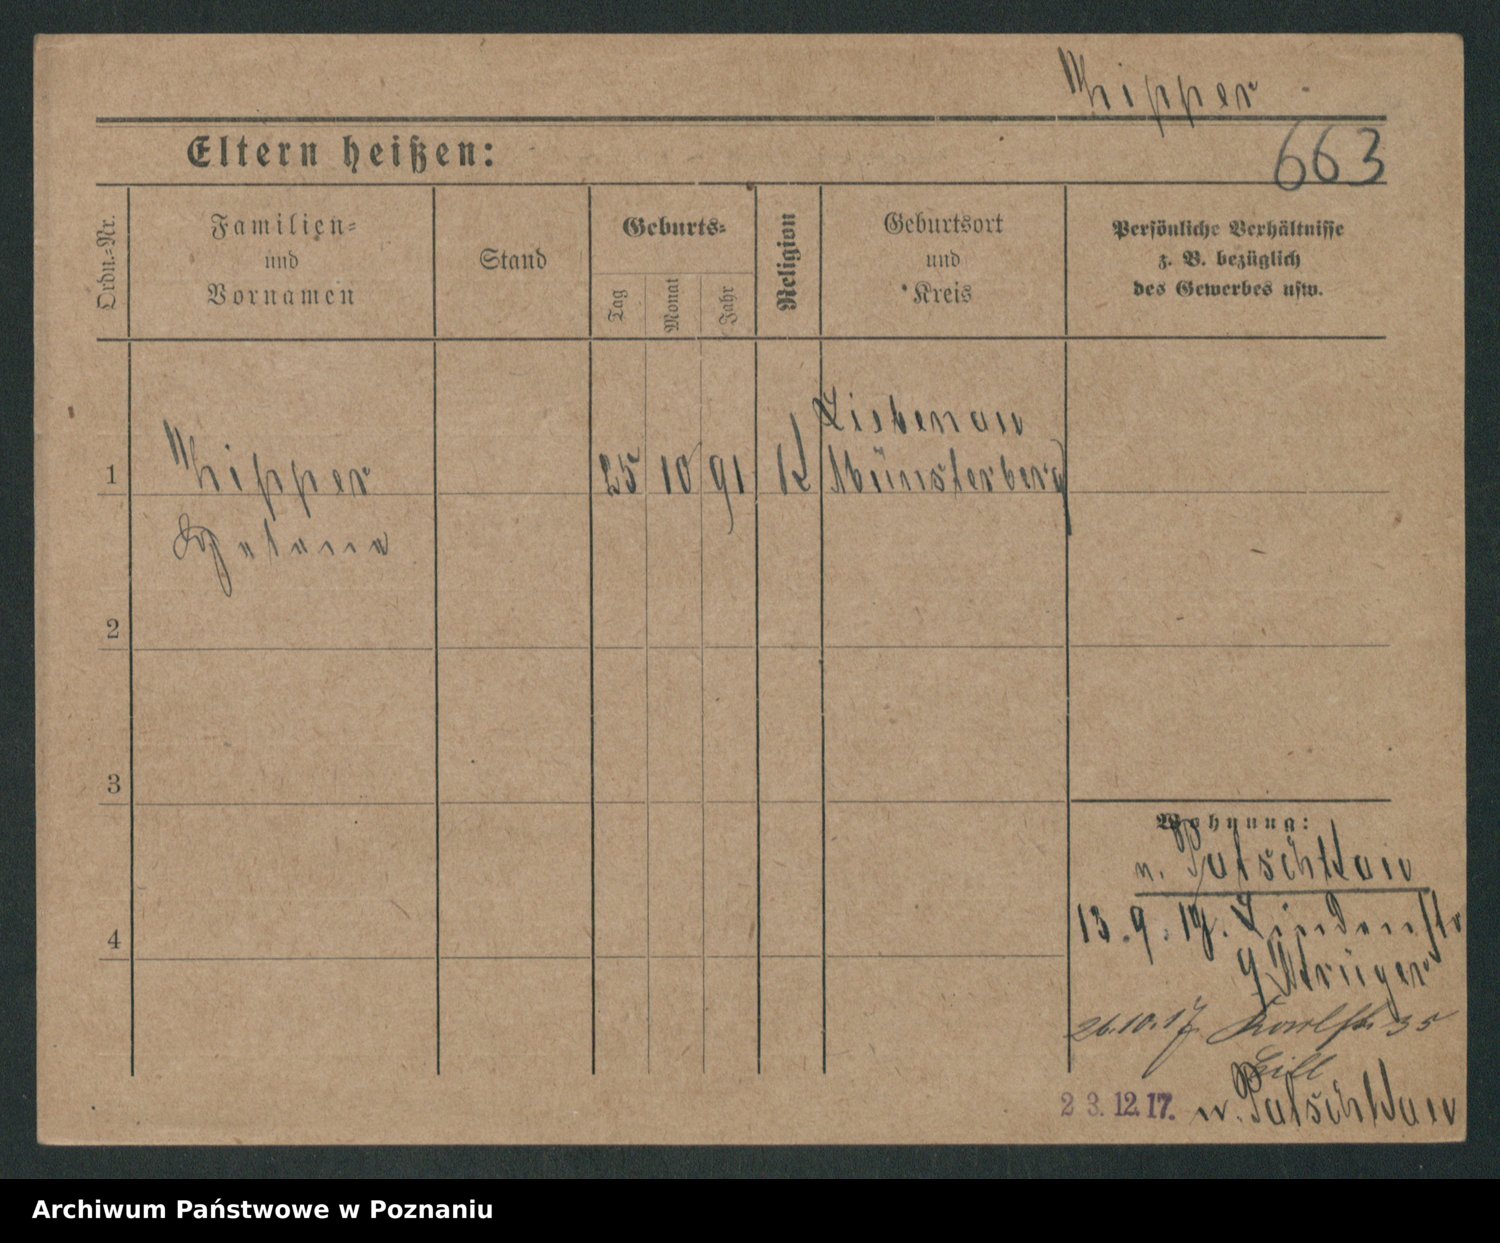 Kipper
663
Eltern heißen:
Ordn.=Nr.
Familien=
und
Vornamen
Stand
Geburts=
Tag
Monat
Jahr
Religion
Geburtsort
und
Kreis
Persönliche Verhältnisse
z. B. bezüglich
des Gewerbes usw.
1
Kipper
25 10 91 K
Liebenau
Münsterberg
2
3
4
Wohnung:
n. Patschkau
13.9.17. Lindenstr
9 Krüger
26.10.17. Karlstr. 35
23.12.17. n. Patschkau
Archiwum Państwowe w Poznaniu